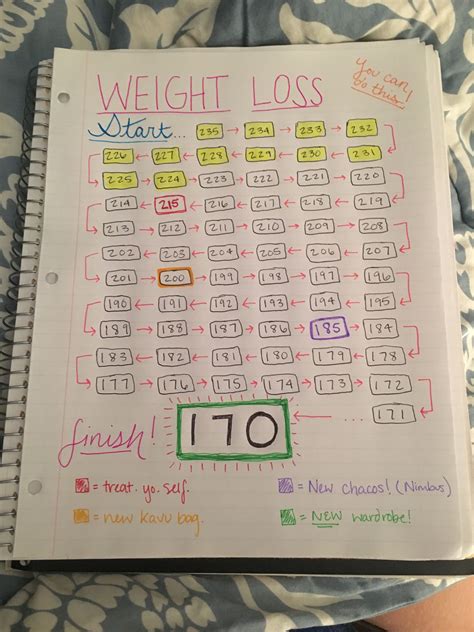 WEIGHT LOSS
You can do this!
Start... 235 → 234 → 233 → 232
226 ← 227 ← 228 ← 229 ← 230 ← 231
225 → 224 → 223 → 222 → 221 → 220
214 ← 215 ← 216 ← 217 ← 218 ← 219
213 → 212 → 211 → 210 → 209 → 208
202 ← 203 ← 204 ← 205 ← 206 ← 207
201 → 200 → 199 → 198 → 197 → 196
190 ← 191 ← 192 ← 193 ← 194 ← 195
189 → 188 → 187 → 186 → 185 → 184
183 ← 182 ← 181 ← 180 ← 179 ← 178
177 → 176 → 175 → 174 → 173 → 172
finish! 170 ← ... 171
= treat. yo. self.
= New chacos! (Nimbus)
= new kavu bag.
= NEW wardrobe!